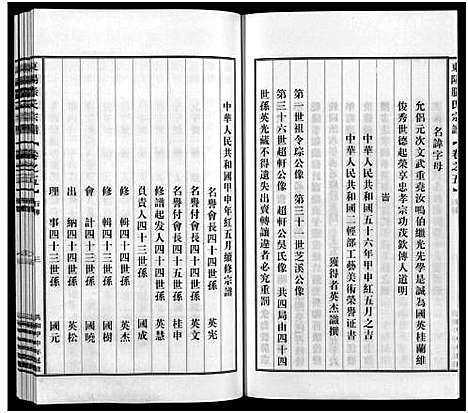 東陽滕氏宗譜【卷之五】
名諱字母
允侶元次文武重堯汝鳴伯繼光先學是誠為國英桂蘭維
俊秀世德起榮享忠孝宗功茂欽傳人道明
耑
中華人民共和國五十六年甲申紅五月之吉
中華人民共和國二輕部工藝美術榮譽证書
獲得者英杰謹撰
第一世祖令琮公像 第三十一世芝溪公像
第三十六世超軒公像 超軒公吳氏像 共四局由四十四
世孫英光藏不得遺失出賣轉讓違者必究重罰
中華人民共和國甲申年紅五月續修宗譜
名譽會長四十四世孫 英宪
名誉付會長四十四世孫 英文
名誉付會長四十五世孫 桂申
修譜起发人四十四世孫 英慧
負責人四十三世孫 國成
修輯四十四世孫 英杰
修輯四十三世孫 國樹
會計四十三世孫 國曉
出納四十四世孫 英松
理事四十三世孫 國元
東陽滕氏宗譜【卷之五】